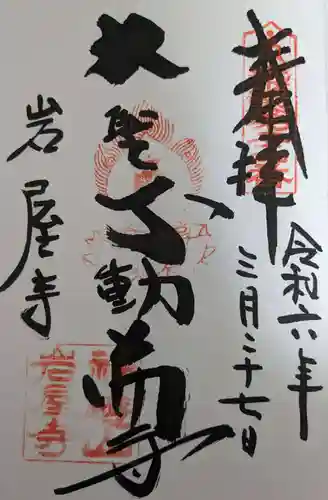 奉拝
令和六年
三月二十七日
大聖不動尊
岩屋寺
岩屋寺